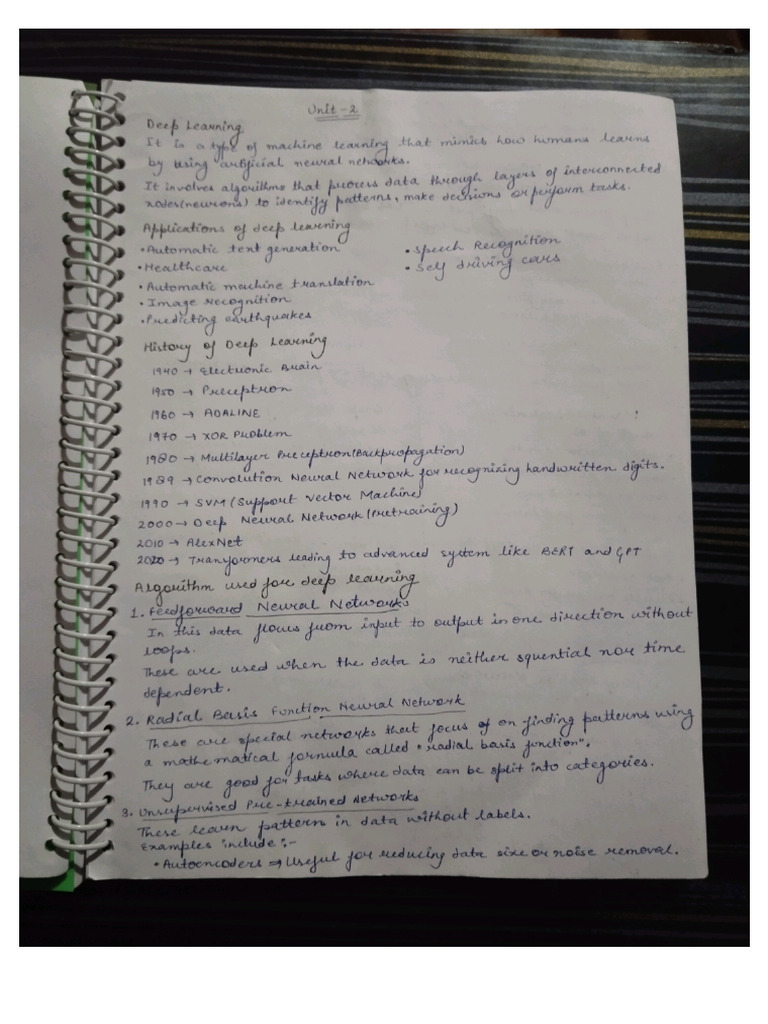 Unit-2
Deep Learning
It is a type of machine learning that mimics how humans learns
by using artificial neural networks.
It involves algorithms that process data through layers of interconnected
nodes(neurons) to identify patterns, make decisions or perform tasks.
Applications of deep learning
•Automatic text generation
•Healthcare
•Automatic machine translation
•Image recognition
•Predicting earthquakes
•Speech Recognition
•Self driving cars
History of Deep Learning
1940 → Electronic Brain
1950 → Preceptron
1960 → ADALINE
1970 → XOR Problem
1980 → Multilayer Preceptron(Backpropagation)
1989 → Convolution Neural Network for recognizing handwritten digits.
1990 → SVM (Support Vector Machine)
2000 → Deep Neural Network (Pretraining)
2010 → AlexNet
2020 → Tranformers leading to advanced system like BERT and GPT
Algorithm used for deep learning
1. Feedforward Neural Networks
In this data flows from input to output in one direction without
loops.
These are used when the data is neither squential nor time
dependent.
2. Radial Basis Function Neural Network
These are special networks that focus of on finding patterns using
a mathematical formula called "radial basis function".
They are good for tasks where data can be split into categories.
3. Unsupervised Pre-trained Networks
These learn pattern in data without labels.
Examples include :-
•Autoencoders ⇒ Useful for reducing data size or noise removal.